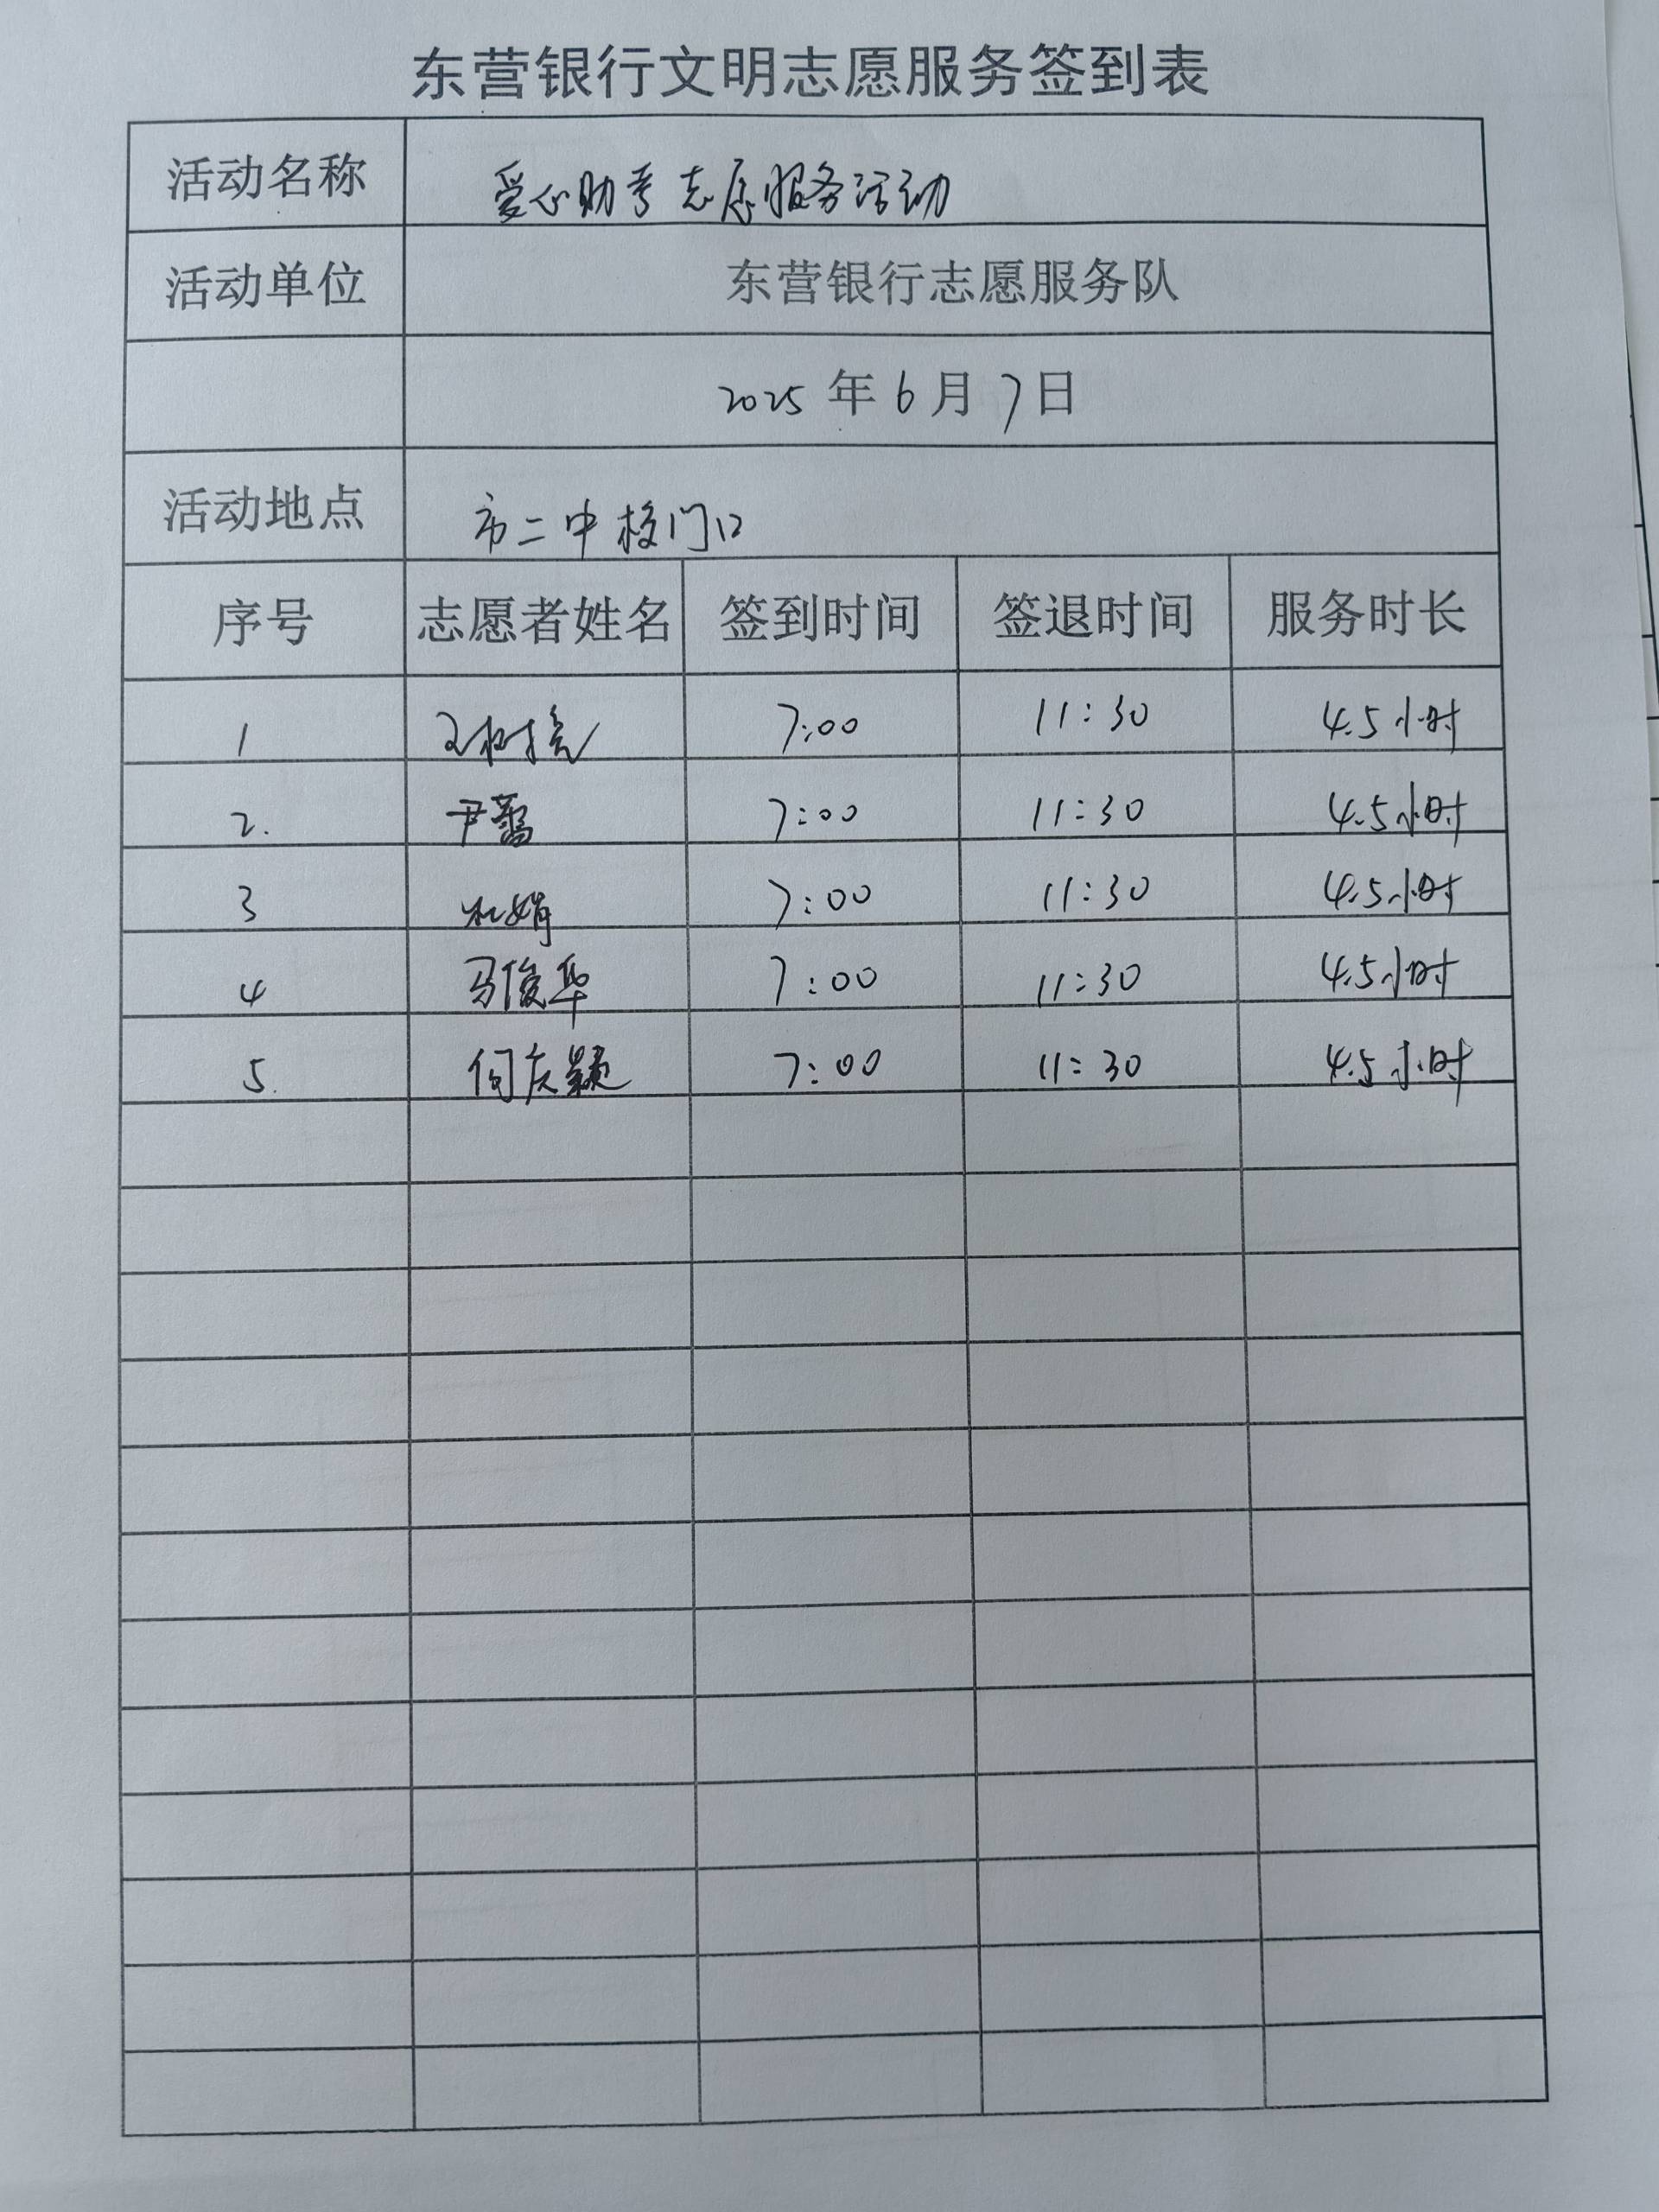 东营银行文明志愿服务签到表
活动名称 爱心助考志愿服务活动
活动单位 东营银行志愿服务队
2025年6月7日
活动地点 市二中校门口
序号 志愿者姓名 签到时间 签退时间 服务时长
1 7:00 11:30 4.5小时
2. 尹蕾 7:00 11:30 4.5小时
3 杜娟 7:00 11:30 4.5小时
4 马俊华 7:00 11:30 4.5小时
5. 7:00 11:30 4.5小时